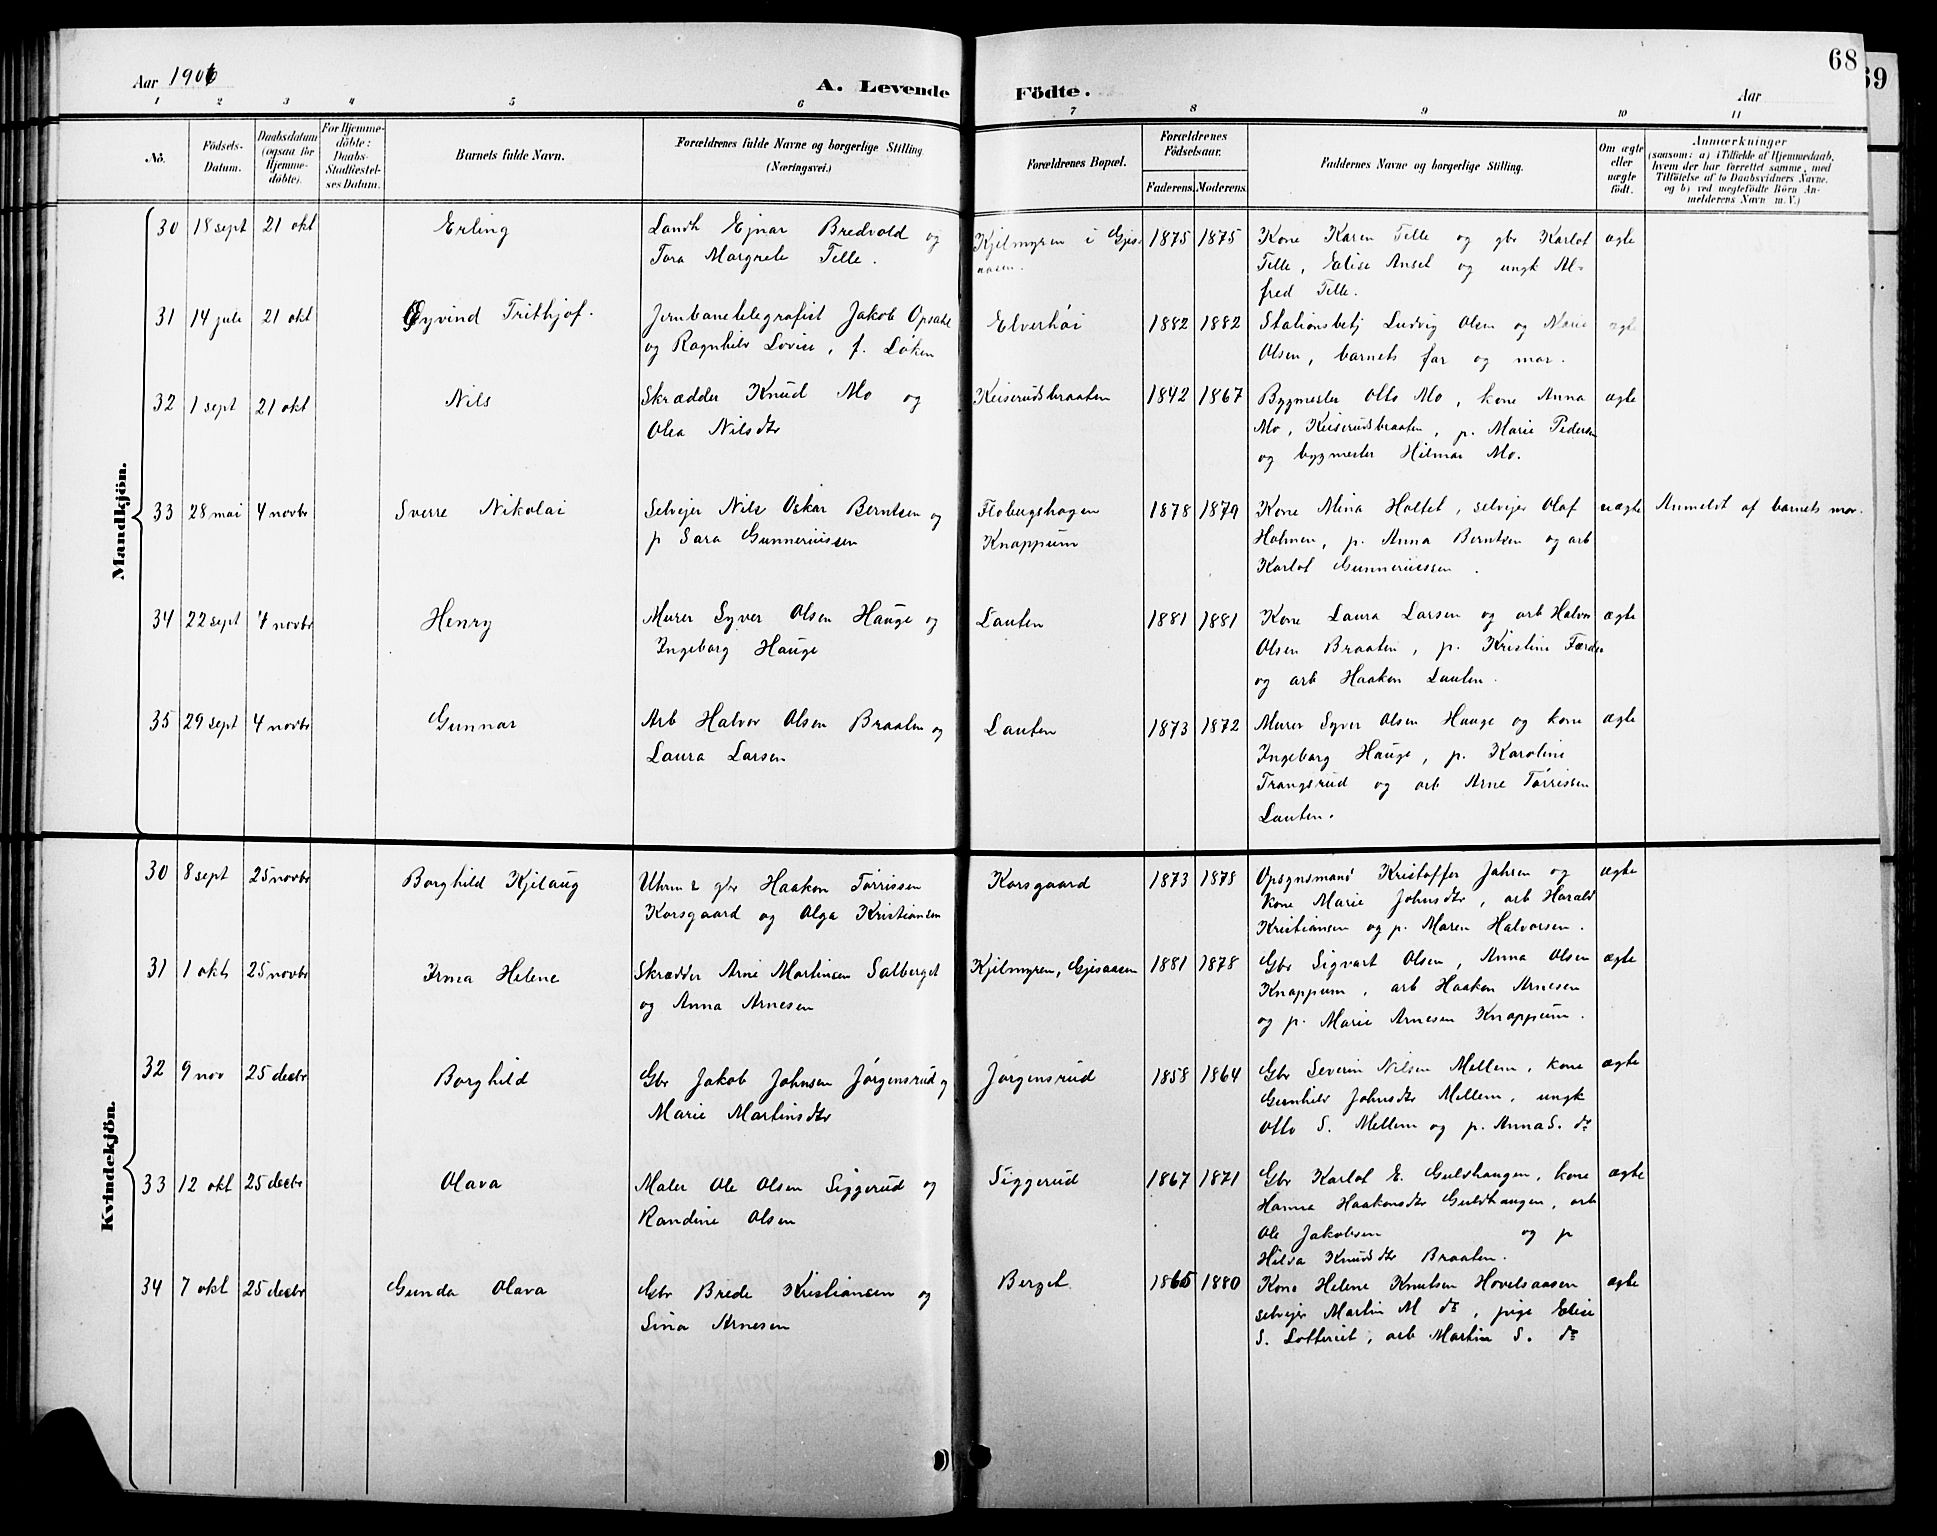 68
69
Aar 1906
A. Levende
Födte.
Aar
1 2 3 4 5 6 7 8 9 10 11
No.
Födsels-
Datum.
Daabsdatum
(ogsaa for
Hjemme-
døbte).
For Hjemme-
døbte:
Daabs-
Stadfæstel-
ses Datum.
Barnets fulde Navn.
Forældrenes fulde Navne og borgerlige Stilling
(Næringsvei.)
Forældrenes Bopæl.
Forældrenes
Födselsaar.
Faderens. Moderens.
Faddernes Navne og borgerlige Stilling.
Om ægte
eller
uægte
født.
Anmærkninger
(saasom: a) i Tilfælde af Hjemmedaab,
hvem der har forrettet samme, med
Tilföielse af to Daabsvidners Navne,
og b) ved uægtefödte Börn An-
melderens Navn m. V.)
Mandkjön.
30 18 sept 21 okt Erling
Landh Ejnar Bredvold og
Tora Margrete Telle.
Kjelmyren i Gjes-
aasen.
1875 1875
Kone Karen Telle og gbr Karlot
Telle, Elise Ansel og ungk Al-
fred Telle.
ægte
31 14 jule 21 okt Øyvind Trithjof.
Jernbanetelegrafist Jakob Opsahl
og Ragnhild Lovise, f. Løken
Elverhøi
1882 1882
Stationsbetj Ludvig Olsen og Marie
Olsen, barnets far og mor.
ægte
32 1 sept 21 okt Nils
Skrædder Knud Mo og
Olea Nilsdtr
Keiserudsbraaten
1842 1867
Bygmester Otto Mo, kone Anna
Mo, Keiserudsbraaten, p. Marie Pedersen
og bygmester Hilmar Mo.
ægte
33 28 mai 4 novbr Sverre Nikolai
Selvejer Nils Oskar Berntsen og
p Sara Gunneriussen
Flobergshagen
Knappum
1878 1879
Kone Mina Holtet, selvejer Olaf
Holmen, p. Anna Berntsen og arb
Karlot Gunneriussen.
uægte
Anmeldt af barnets mor.
34 22 sept 4 novbr Henry
Murer Syver Olsen Hauge og
Ingeborg Hauge
Lauten
1881 1881
Kone Laura Larsen og arb Halvor
Olsen Braaten, p. Kristine Færder
og arb Haaken Lauten.
ægte
35 29 sept 4 novbr Gunnar
Arb Halvor Olsen Braaten og
Laura Larsen
Lauten
1873 1872
Murer Syver Olsen Hauge og kone
Ingeborg Hauge, p. Karoline
Trangsrud og arb Arne Tørrissen
Lauten.
ægte
Kvindekjön.
30 8 sept 25 novbr Borghild Kjelaug
Uhrm & gbr Haakon Tørrissen
Korsgaard og Olga Kristiansen
Korsgaard
1873 1878
Opsynsmand Kristoffer Jahren og
kone Marie Johnsdtr, arb Harald
Kristiansen og p. Maren Halvorsen.
ægte
31 1 okt 25 novbr Irma Helene
Skrædder Arne Martinsen Solberget
og Anna Arnesen
Kjelmyren, Gjesaasen
1881 1878
Gbr Sigvart Olsen, Anna Olsen
Knappum, arb Haaken Arnesen
og p. Marie Arnesen Knappum.
ægte
32 9 nov 25 decbr Borghild
Gbr Jakob Johnsen Jørgensrud og
Marie Martinsdtr
Jørgensrud
1858 1864
Gbr Severin Nilsen Mellem, kone
Gunhild Johnsdtr Mellem, ungk
Otto S. Mellem og p. Anna S. do
ægte
33 12 okt 25 decbr Olava
Maler Ole Olsen Siggerud og
Randine Olsen
Siggerud
1867 1871
Gbr Karlot E. Guldhaugen, kone
Hanna Haakonsdtr Guldhaugen, arb
Ole Jakobsen og p
Hilda Knudsdtr Braaten.
ægte
34 7 okt 25 decbr Gunda Olava
Gbr Brede Kristiansen og
Sina Arnesen
Berget
1865 1880
Kone Helene Knutsen Hovelsaasen
selvejer Martin M do, pige Elise
S. Lotteriet, arb Martin S. do
ægte